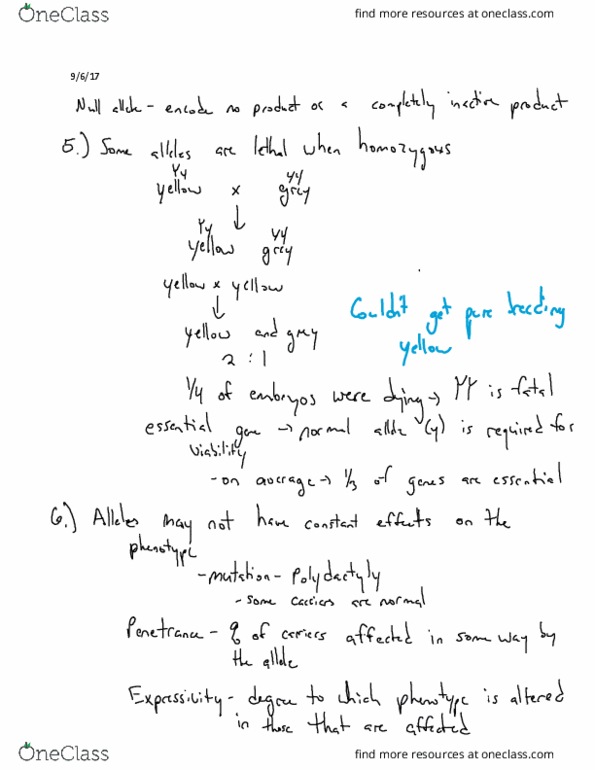 OneClass
find more resources at oneclass.com
9/6/17
Null allele - encode no product or a completely inactive product
5.) Some alleles are lethal when homozygous
Yy yy
yellow x grey
↓
Yy yy
yellow grey
yellow x yellow
↓
yellow and grey
2 : 1
Couldn't get pure breeding
yellow
1/4 of embryos were dying → YY is fatal
essential gene → normal allele (y) is required for
viability
- on average → 1/3 of genes are essential
6.) Alleles may not have constant effects on the
phenotype
- mutation - Polydactyly
- some carriers are normal
Penetrance - % of carriers affected in some way by
the allele
Expressivity - degree to which phenotype is altered
in those that are affected
OneClass
find more resources at oneclass.com